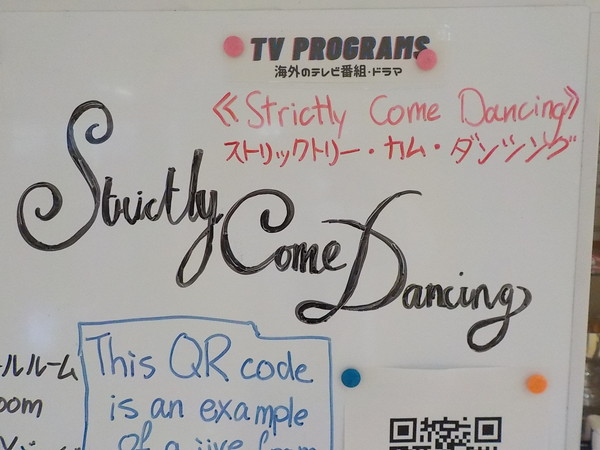 TV PROGRAMS
海外のテレビ番組・ドラマ
《Strictly Come Dancing》
ストリックトリー・カム・ダンシング
Strictly
Come
Dancing
ールルーム
oom
This QR code
is an example
of a jive from